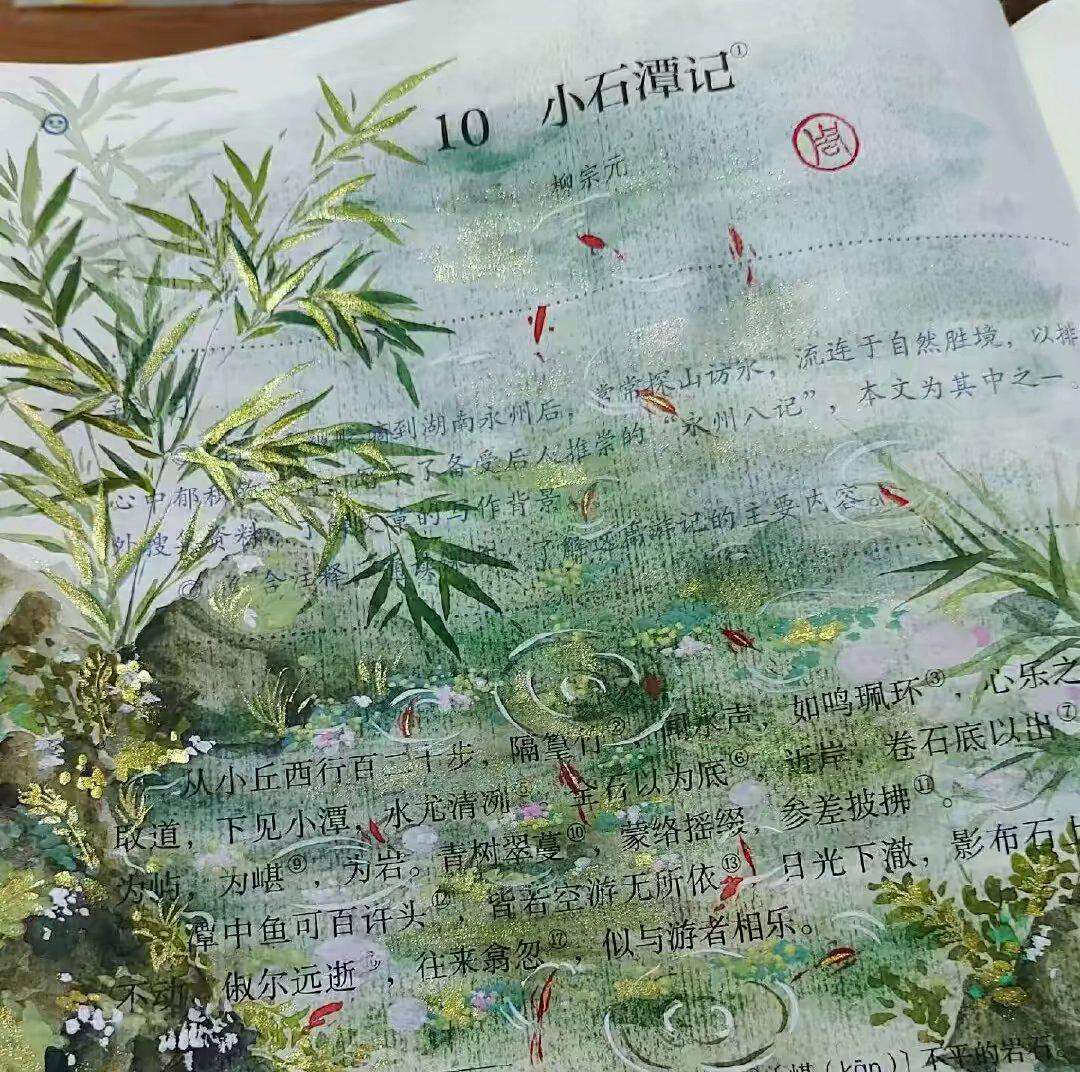 10 小石潭记①
柳宗元
到湖南永州后，常常探山访水，流连于自然胜境，以排
心中郁积 了备受后人推崇的“永州八记”，本文为其中之一。
外搜 资料 的写作背景
合注释 了解这篇游记的主要内容。
从小丘西行百二十步，隔篁竹②，闻水声，如鸣珮环③，心乐之
取道，下见小潭，水尤清冽 全石以为底⑥，近岸，卷石底以出⑦
为屿，为嵁⑨，为岩。青树翠蔓⑩，蒙络摇缀，参差披拂⑪。
潭中鱼可百许头⑫，皆若空游无所依⑬，日光下澈，影布石上
不动，俶尔远逝 ，往来翕忽⑰，似与游者相乐。
嵁（kān）］不平的岩石。